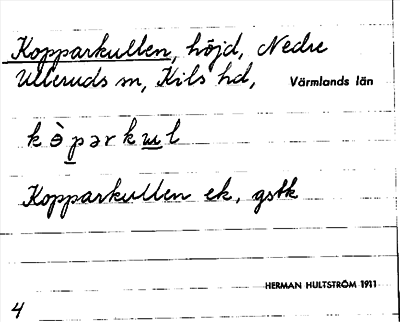 Kopparkullen, höjd, Nedre
Ulleruds sn, Kils hd, Värmlands län
k ɵ̀ p ə r k u l
Kopparkullen ek, gstk
HERMAN HULTSTRÖM 1911
4